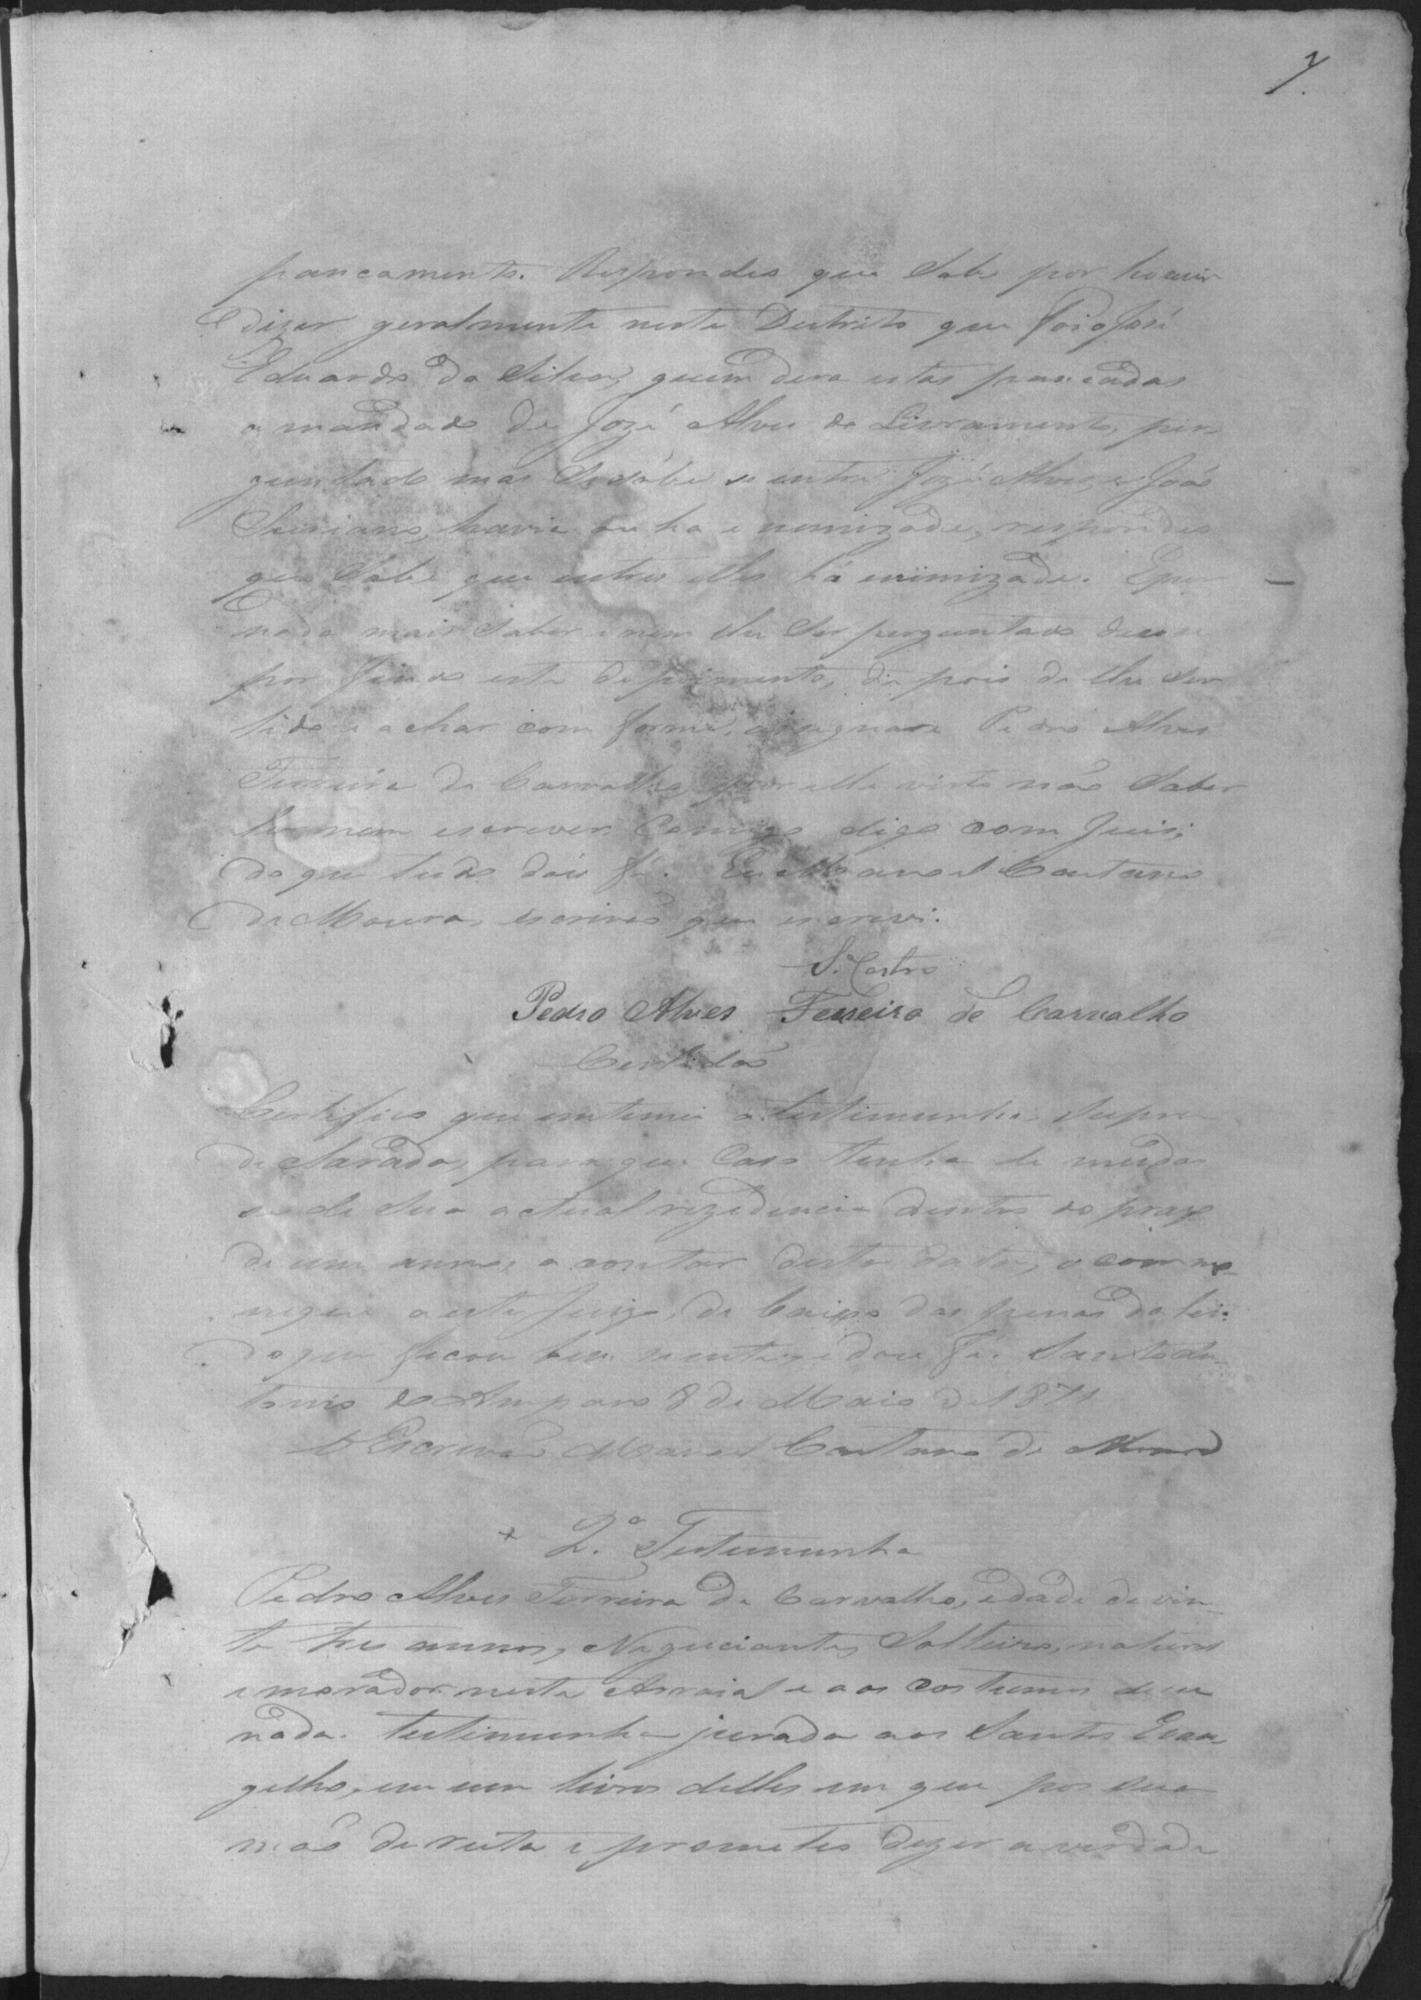 7.
pancamento. Respondeo que Sabe por houvir
dizer geralmente neste Destrito que foio José
Eduardo da Silva, quem dera estas pancadas
a mandado de Jozé Alves do Livramento, per
guntado mas Sesábe se entre Jozé Alves, e João
havia ou ha enemizade, respondeo
que Sabe que entres elles há enimizade. Epor
nada mais Saber e nem lhe Ser perguntado deuse
por findo este depuimento, de pois de lhe Ser
lido e achar com forme, asignase Pedro Alves
Ferreira de Carvalho por ella visto não Saber
ler nem escrever Comigo digo com Juis;
do que tudo dou fé. Eu Manoel Caetano
de Moura, escrivão que escrevi.
S. Castro
Pedro Alves Ferreira de Carvalho
Certidão
Certifico que entemei a testimunha Supra
declarada, para que Caso tenha de mudar
se de Sua actual rezidencia dentro do prazo
de um anno, a contar desta data, o commu
nique a este Juizo, de baixo das penas da lei.
do que ficou bem siente, e dou fé. Santo An
tonio do Amparo 8 de Maio de 1871
O Escrivão Manoel Caetano de Moura
2.ª Testemunha
Pedro Alves Ferreira de Carvalho, edade de vin
te tres annos, Neguciante, Solteiro, natural
e morador neste Arraial e aos costumes disse
nada. testimunha jurada aos Santos Evan
gelhos, em um livro delles em que pos sua
mão dereita e prometeo dizer a verdade